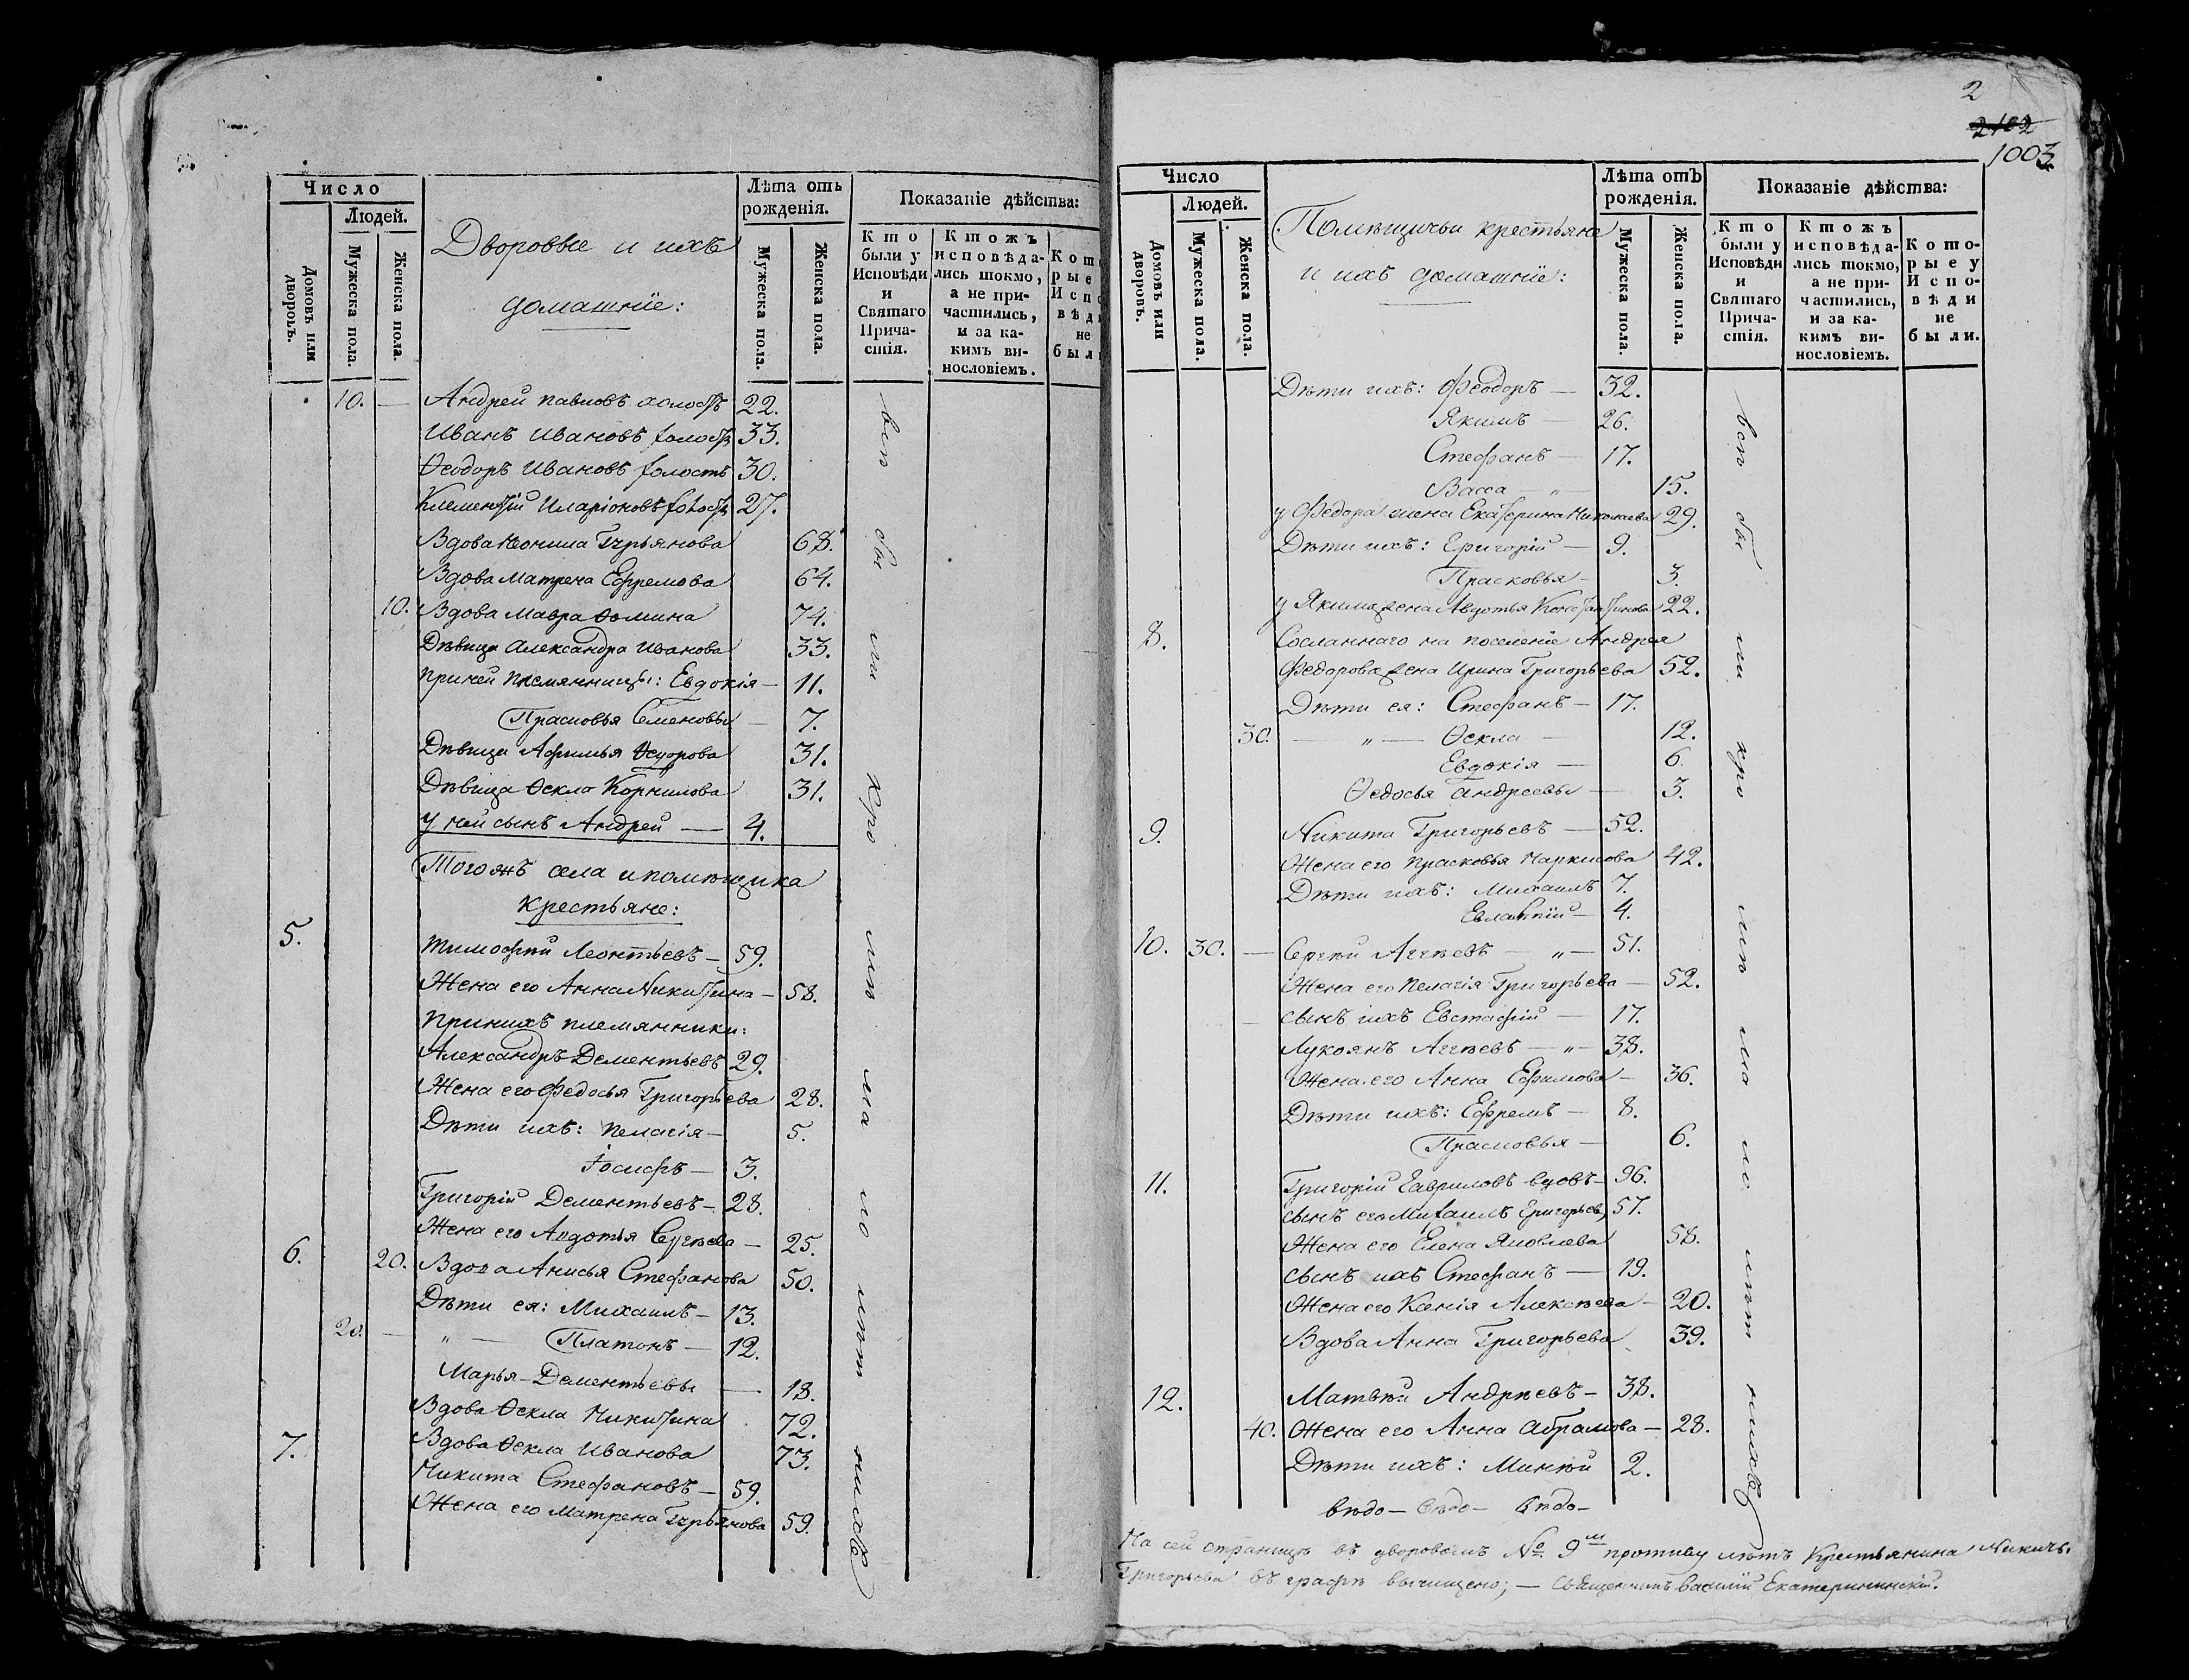 Число
Людей.
Домовъ или дворовъ.
Мужеска пола.
Женска пола.
Дворовые и ихъ
домашніе:
Лѣта отъ
рожденія.
Мужеска пола.
Женска пола.
Показаніе дѣйства:
Кто
были у
Исповѣди
и
Святаго
Прича-
стія.
Ктожъ
исповѣда-
лись токмо,
а не при-
частились,
и за ка-
кимъ ви-
нословіемъ.
10. — Андрей Павловъ холостъ 22.
Иванъ Ивановъ холостъ 33.
Ѳеодоръ Ивановъ холостъ 30.
Клементій Иларіоновъ холостъ 27.
Вдова Неонила Гурьянова 68.
Вдова Матрена Ефремова 64.
10. Вдова Мавра Ѳомина 74.
Дѣвица Александра Иванова 33.
При ней племянницы: Евдокія — 11.
Прасковья Семеновы — 7.
Дѣвица Афимья Ѳедорова 31.
Дѣвица Ѳекла Корнилова 31.
У ней сынъ Андрей — 4.
Тогожъ села и помѣщика
крестьяне:
5. Тимофей Леонтьевъ — 59.
Жена его Анна Никитина — 58.
При нихъ племянники:
Александръ Дементьевъ 29.
Жена его Федосья Григорьева 28.
Дѣти ихъ: Пелагія — 5.
Іосифъ — 3.
Григорій Дементьевъ — 28.
Жена его Авдотья Сергѣева — 25.
6. 20. Вдова Анисья Стефанова 50.
Дѣти ея: Михаилъ — 13.
20. — " — Платонъ — 12.
Марья — Дементьевы — 18.
Вдова Ѳекла Никитина 72.
7. Вдова Ѳекла Иванова 73.
Никита Стефановъ — 59.
Жена его Матрена Гурьянова 59.
2
2102
1003
Число
Людей.
Домовъ или дворовъ.
Мужеска пола.
Женска пола.
Помѣщичьи крестьяне
и ихъ домашніе:
Лѣта отъ
рожденія.
Мужеска пола.
Женска пола.
Показаніе дѣйства:
Кто
были у
Исповѣди
и
Святаго
Прича-
стія.
Ктожъ
исповѣда-
лись токмо,
а не при-
частились,
и за ка-
кимъ ви-
нословіемъ.
Кото-
рые у
Испо-
вѣди
не
были.
Дѣти ихъ: Феодоръ — 32.
Якимъ — 26.
Стефанъ — 17.
Васса — " — 15.
У Федора жена Екатерина Николаева 29.
Дѣти ихъ: Григорій — 9.
Прасковья — 3.
У Якима жена Авдотья Константинова 22.
8. Сосланнаго на поселеніе Андрея
Федорова жена Ирина Григорьева 52.
Дѣти ея: Стефанъ — 17.
30. — " — Ѳекла — 12.
Евдокія — 6.
Ѳедосья Андреевы — 3.
9. Никита Григорьевъ — 52.
Жена его Прасковья Маркисова 42.
Дѣти ихъ: Михаилъ 7.
Евлампій — 4.
10. 30. — Сергѣй Аггѣевъ — " — 51.
Жена его Пелагія Григорьева — 52.
Сынъ ихъ Евстафій — 17.
Лукоянъ Аггѣевъ — " — 38.
Жена его Анна Ефимова — 36.
Дѣти ихъ: Ефремъ — 8.
Прасковья — 6.
11. Григорій Гавриловъ вдовъ — 96.
Сынъ его Михаилъ Григорьевъ 57.
Жена его Елена Яковлева 58.
Сынъ ихъ Стефанъ — 19.
Жена его Ксенія Алексѣева — 20.
Вдова Анна Григорьева 39.
12. Матвѣй Андрѣевъ — 38.
40. Жена его Анна Абрамова — 28.
Дѣти ихъ: Минѣй 2.
На сей страницѣ въ дворовомъ № 9м противу лѣтъ Крестьянина Никиты
Григорьева въ графѣ вычищено; — Священникъ Василій Екатерининскій.